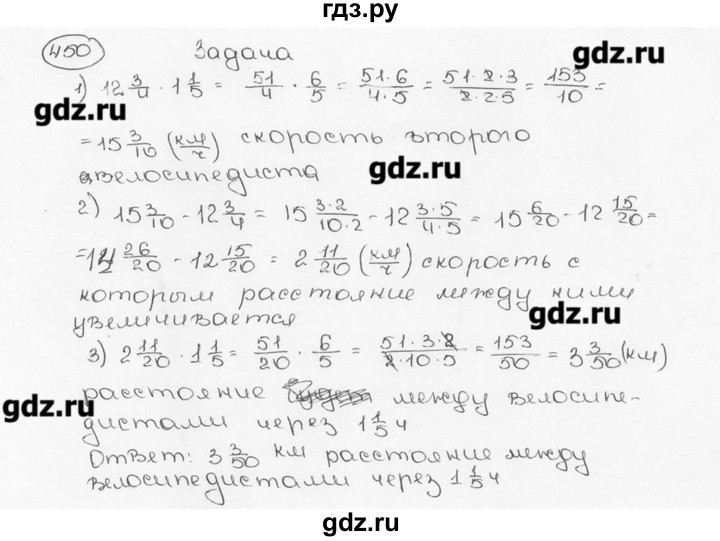 гдз.ру
450 Задача
gdz.ru
1) 12 3/4 · 1 1/5 = 51/4 · 6/5 = 51·6/4·5 = 51·2·3/2·2·5 = 153/10 =
gdz.ru
= 15 3/10 (км/ч) скорость второго
gdz.ru
велосипедиста
2) 15 3/10 - 12 3/4 = 15 3·2/10·2 - 12 3·5/4·5 = 15 6/20 - 12 15/20 =
= 14 26/20 - 12 15/20 = 2 11/20 (км/ч) скорость с
которым расстояние между ними
gdz.ru
увеличивается
3) 2 11/20 · 1 1/5 = 51/20 · 6/5 = 51·3·2/2·10·5 = 153/50 = 3 3/50 (км)
расстояние между велосипе-
gdz.ru
дистами через 1 1/5 ч
Ответ: 3 3/50 км расстояние между
велосипедистами через 1 1/5 ч
gdz.ru